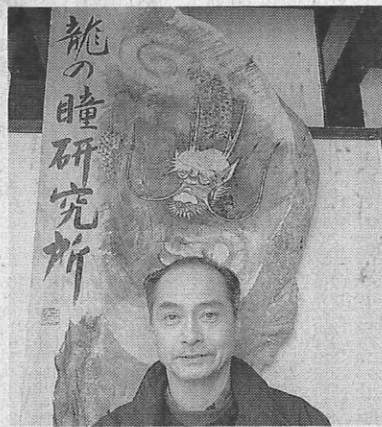 龍の瞳研究所